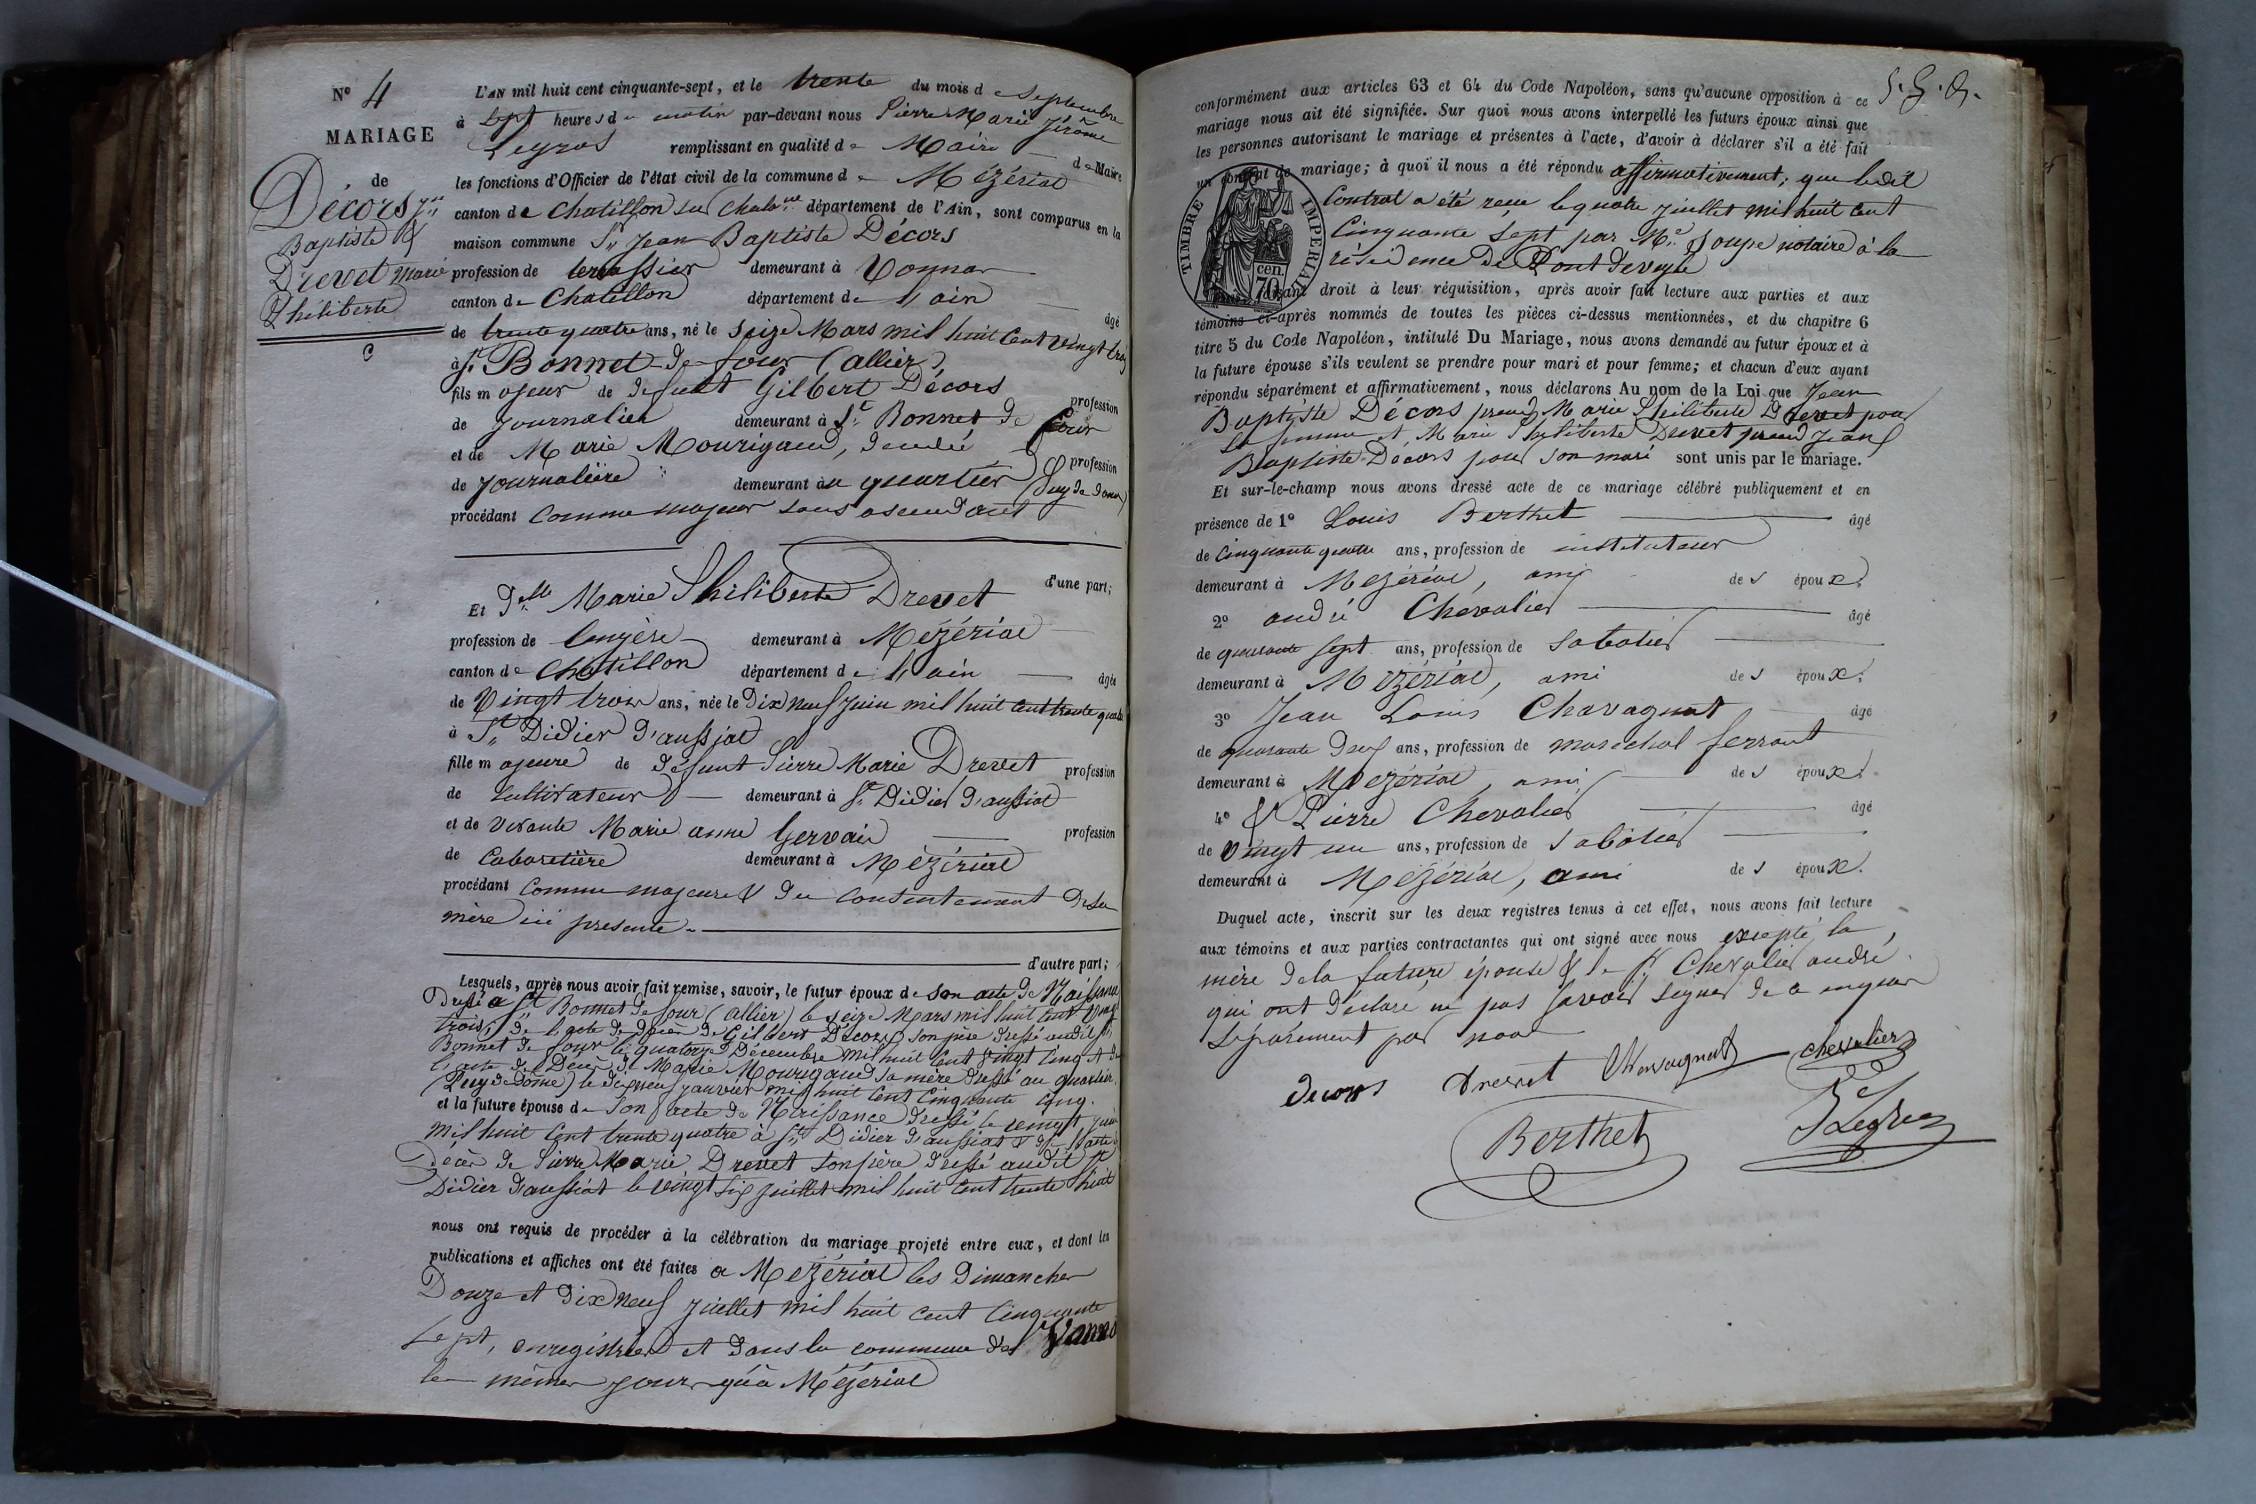 N° 4
MARIAGE
de
Décors Jn
Baptiste &
Drevet Marie
Philiberte
L'AN mil huit cent cinquante-sept, et le trente du mois de Septembre
à sept heures du matin par-devant nous Pierre Marie Jérôme
remplissant en qualité de Maire de Maire
les fonctions d'Officier de l'état civil de la commune de Mézériat
canton de Chatillon sur Chalnne département de l'Ain, sont comparus en la
maison commune Sr Jean Baptiste Décors
profession de terrassier demeurant à Vonnas
canton de Chatillon département de l'ain
âgé
de trente quatre ans, né le seize Mars mil huit Cent vingt trois
à St Bonnet de four (allier)
fils majeur de defunt Gilbert Décors
profession
de journalier demeurant à St Bonnet de four
et de Marie Mourigaud, décedée
profession
de journalière demeurant au quartier (Puy de dome)
procédant comme majeur sans ascendant
d'une part;
Et Delle Marie Philiberte Drevet
profession de lingère demeurant à Mézériat
canton de Chatillon département de l'ain âgée
de vingt trois ans, née le Dix neuf juin mil huit cent trente quatre
à St Didier d'aussiat
fille majeure de défunt Pierre Marie Drevet profession
de cultivateur demeurant à St Didier d'aussiat
et de vivante Marie anne Gervais profession
de Cabaretière demeurant à Mézériat
procédant comme majeure & du consentement de sa
mère ici presente.
d'autre part;
Lesquels, après nous avoir fait remise, savoir, le futur époux de son acte de Naissance
Dressé a St Bonnet de four (allier) le seize Mars mil huit cent vingt
trois, de l'acte de décès de Gilbert Décors son père dressé audit St
Bonnet de four le quatorze Décembre mil huit Cent vingt cinq et de
l'acte de Décès de Marie Mourigaud sa mère dressé au quartier
(Puy de Dôme) le dix neuf janvier mil huit Cent Cinquante cinq.
et la future épouse de son acte de Naissance dressé le vingt juin
mil huit Cent trente quatre à St Didier d'aussiat & de l'acte de
Décès de Pierre Marie Drevet son père dressé audit St
Didier d'aussiat le vingt six juillet mil huit Cent trente huit
nous ont requis de procéder à la célébration du mariage projeté entre eux, et dont les
publications et affiches ont été faites a Mézériat les Dimanches
Douze et dix neuf juillet mil huit cent Cinquante
Sept, enregistrées et dans la commune de Vonnas
les mêmes jours qu'à Mézériat
conformément aux articles 63 et 64 du Code Napoléon, sans qu'aucune opposition à ce
mariage nous ait été signifiée. Sur quoi nous avons interpellé les futurs époux ainsi que
les personnes autorisant le mariage et présentes à l'acte, d'avoir à déclarer s'il a été fait
un contrat de mariage; à quoi il nous a été répondu affirmativement; que ledit
Contrat a été reçu le quatre juillet mil huit Cent
Cinquante sept par Me Soupe notaire à la
résidence de Pont deveyle
TIMBRE IMPERIAL
70 cen.
faisant droit à leur réquisition, après avoir fait lecture aux parties et aux
témoins ci-après nommés de toutes les pièces ci-dessus mentionnées, et du chapitre 6
titre 5 du Code Napoléon, intitulé Du Mariage, nous avons demandé au futur époux et à
la future épouse s'ils veulent se prendre pour mari et pour femme; et chacun d'eux ayant
répondu séparément et affirmativement, nous déclarons Au nom de la Loi que Jean
Baptiste Décors prend Marie Philiberte Drevet pour
sa femme et, Marie Philiberte Drevet prend Jean
Baptiste Décors pour son mari sont unis par le mariage.
Et sur-le-champ nous avons dressé acte de ce mariage célébré publiquement et en
présence de 1° Louis Berthet âgé
de Cinquante quatre ans, profession de instituteur
demeurant à Mézériat, ami des époux.
2° andré Chevalier âgé
de quarante sept ans, profession de sabotier
demeurant à Mézériat, ami des époux.
3° Jean Louis Chavagnat âgé
de quarante deux ans, profession de maréchal ferrant
demeurant à Mézériat, ami des époux.
4° & Pierre Chevalier âgé
de vingt un ans, profession de sabotier
demeurant à Mézériat, ami des époux.
Duquel acte, inscrit sur les deux registres tenus à cet effet, nous avons fait lecture
aux témoins et aux parties contractantes qui ont signé avec nous excepté la
mère de la future épouse & le Sr Chevalier andré
qui ont déclaré ne pas savoir signer de ce enquis
séparément par nous
decors Drevet Chavagnat chevalier
Berthet